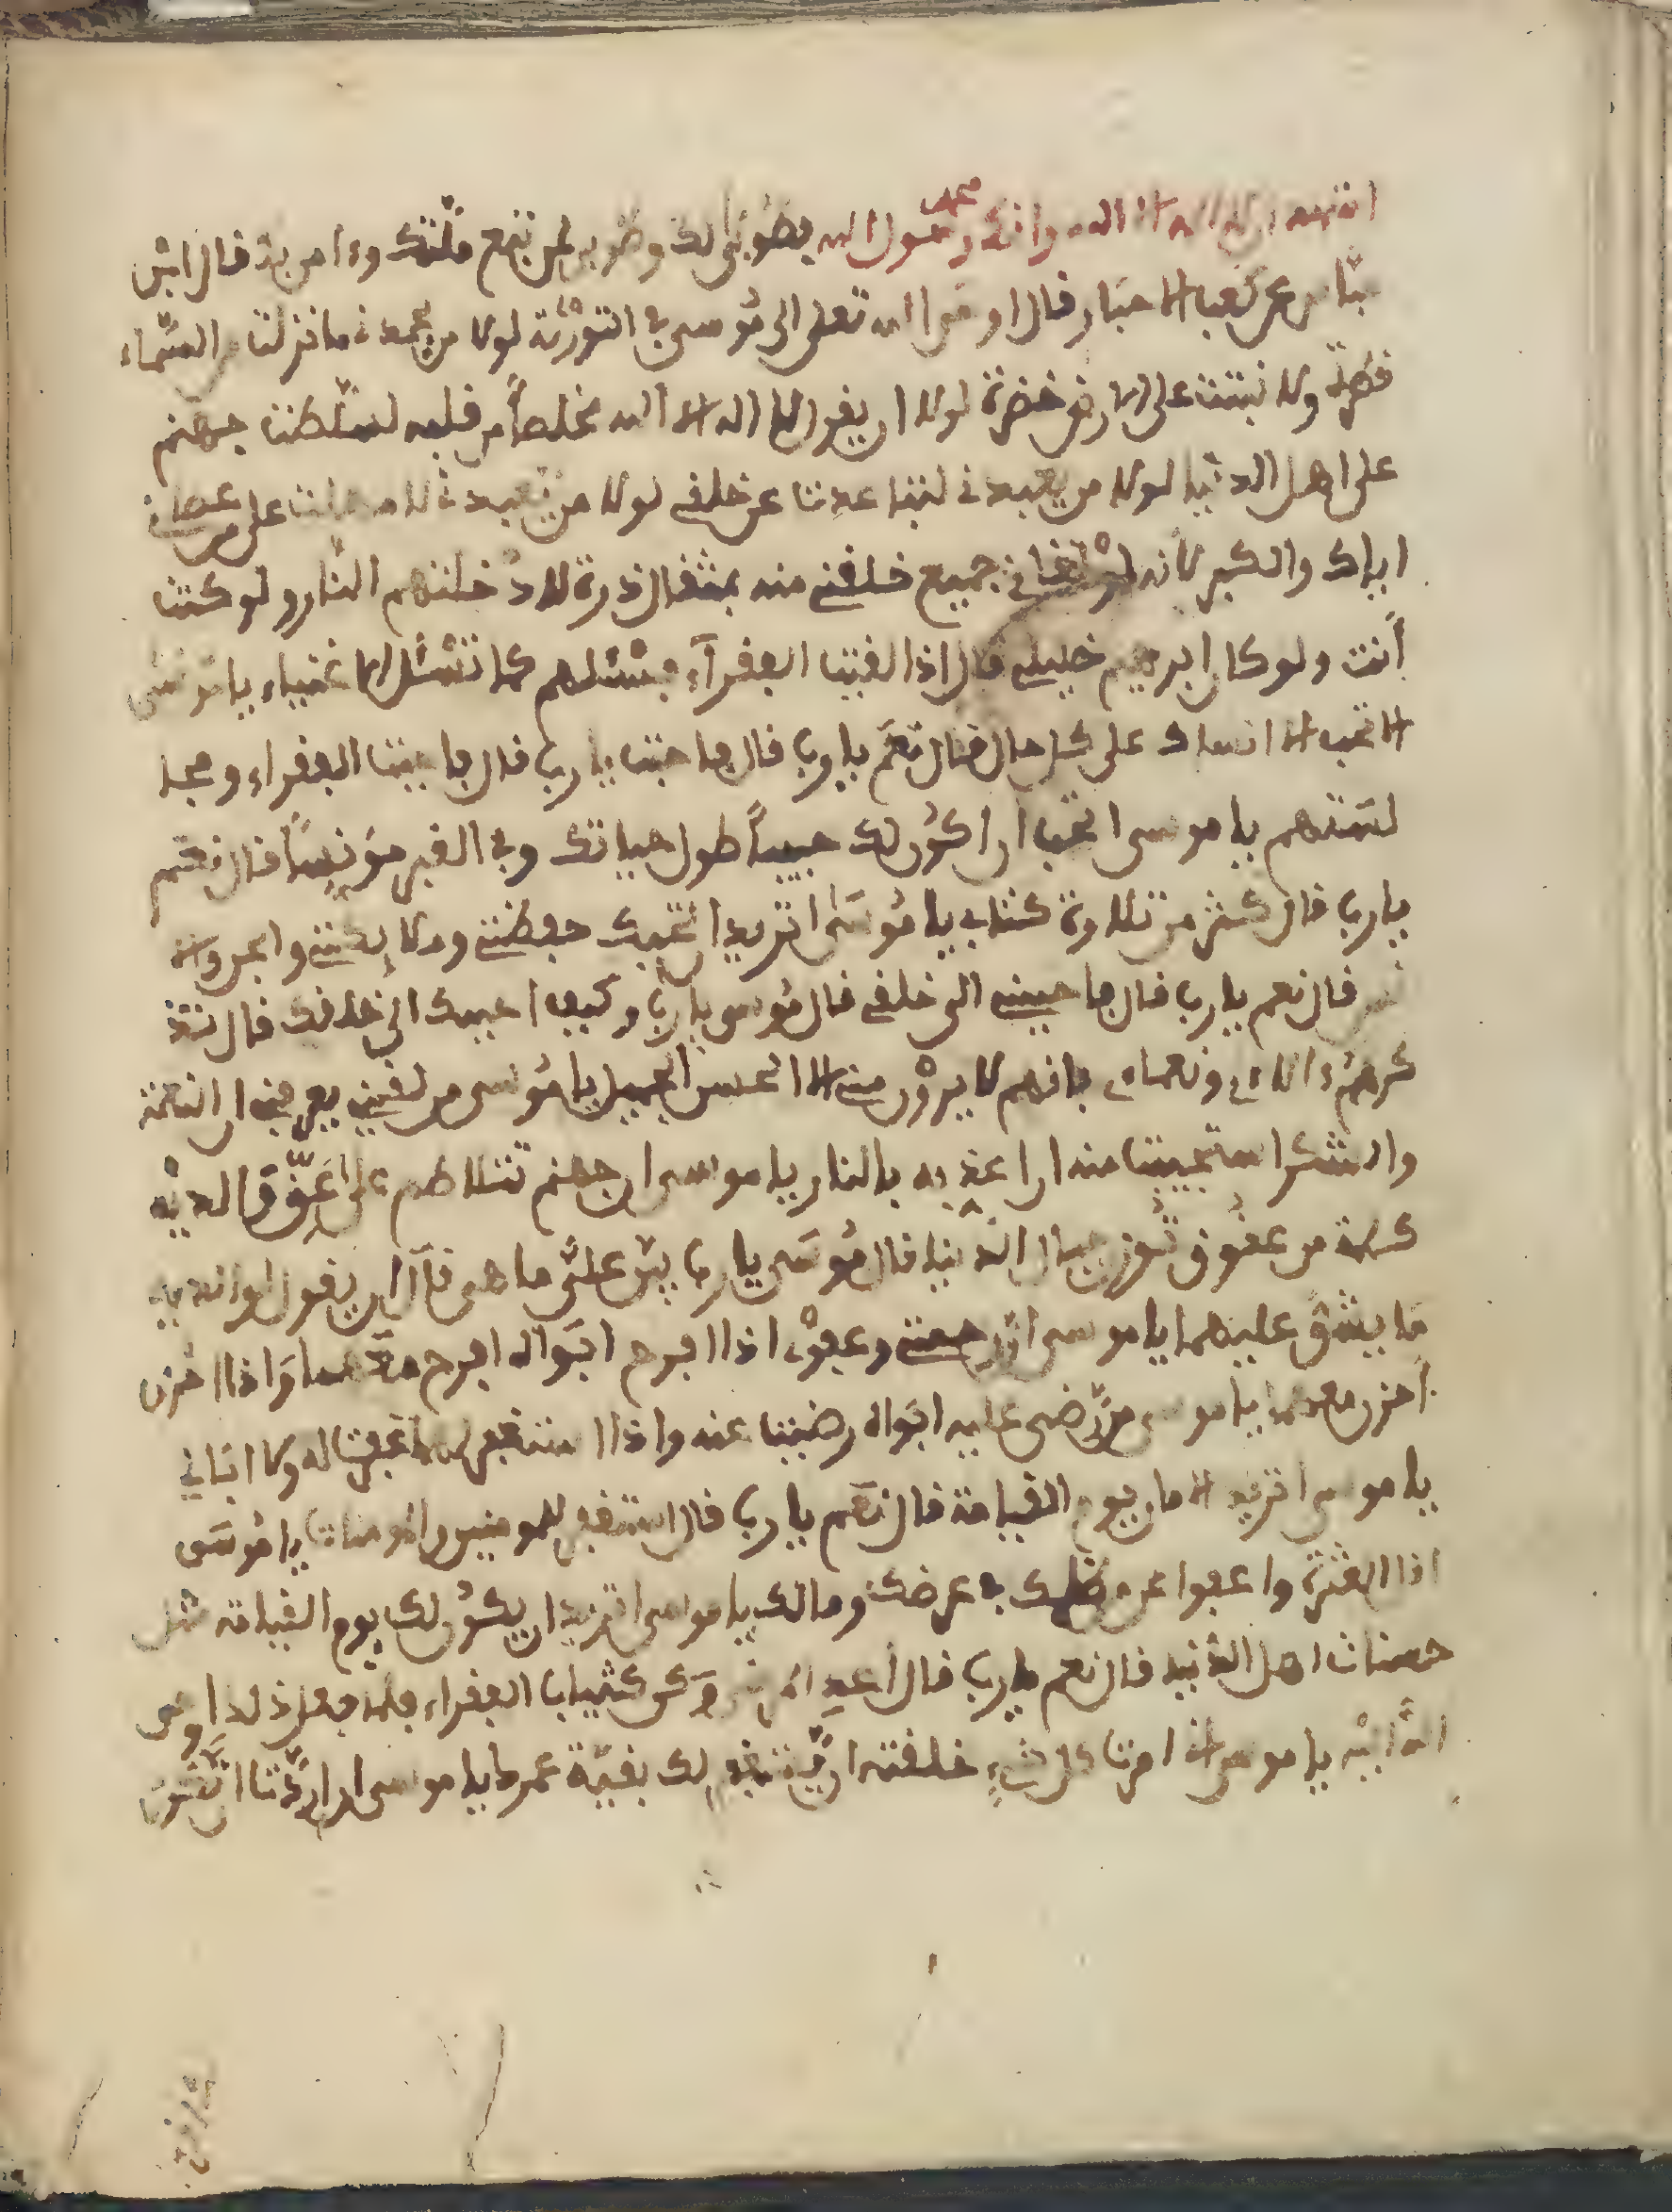 اشهد ان لا اله الا الله وانك محمد رسول الله بطوبى لك وطوبى لمن تبع ملتك وءامن بك فال ابن
عباس عن كعب الاحبار فال اوحى الله تعلى الى موسى في التورية لولا من يحمدني ما نزلت من السماء
فطرة ولا نبتت على الارض خضرة لولا ان يفول لا اله الا الله مخلصاً من فلبه لسلطت جهنم
على اهل الدنيا لولا من يعبدني لتباعدت عن خلفي لولا من يعبدني لما مهلت على من عصاني
اياك والكبر لانه لو لفاني جميع خلفي منه بمثفال ذرة لادخلتهم النار ولو كنت
أنت ولو كان ابرهيم خليلي فال اذا لفيت الففرآء فسئلهم كما تسئل الاغنياء يا موسى
اتحب الا انساك على كل حال فال نعم يا رب فال فاحب يا رب فال فاحبب الففراء ومجا
لستهم يا موسى اتحب ان اكون لك حبيباً طول حياتك وفي الفبر مؤنساً فال نعم
يا رب فال كثر من تلاوة كتابي يا موسى اتريد ان تحبك حفظتي وملايكتي والجن والا
نس فال نعم يا رب فال فاحببني الى خلفي فال موسى يا رب وكيف احببك الى خلفك فال
ذكرهم ءالاءي ونعماءي فانهم لا يرون مني الا الحسن الجميل يا موسى من لفيني يعرف ان النعمة
والشكر استحييت منه ان اعذبه بالنار يا موسى ان جهنم تتلاطم على من عق والديه
كلمة من عفوف تزن جبال الدنيا فال موسى يا رب بين علي ما هي فال ان يفول لوالديه
ما يشق عليهما يا موسى ان رحمتي وعفوي اذا افرح ابواه افرح معهما واذا احزن
احزن معهما يا موسى من رضى عليه ابواه رضيت عنه واذا استغفر له غفرت له ولا ابالي
يا موسى اتريد الامان يوم الفيامة فال نعم يا رب فال استغفر للمومنين والمومنات يا موسى
اذا العثرة واعفوا عن من ظلمك في عرضك ومالك يا موسى اتريد ان يكون لك يوم الفيامة مثل
حسنات اهل الدنيا فال نعم يا رب فال أعد المرضى وكن كثياب الففراء فلما فعل ذلك اوحى
الله اليه يا موسى اني امرت كل شيء خلفته ان يستغفر لك بفية عمرك يا موسى ان اردت ان